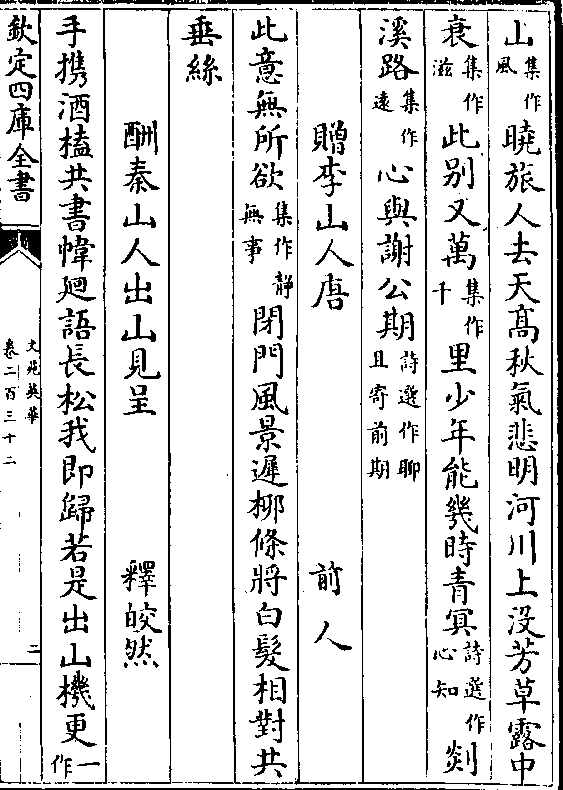 山集作風曉旅人去天髙秋氣悲明河川上沒芳草露中
衰集作滋此别又萬集作千里少年能幾時青冥詩選作心知剡
溪路集作遠心與謝公期詩選作聊且寄前期
贈李山人唐 前人
此意無所欲集作靜無事閉門風景遲栁條將白髮相對共
垂絲
酬秦山人出山見呈 釋皎然
手携酒榼共書幃廻語長松我即歸若是出山機更一作
欽定四庫全書
文苑英華
卷二百三十二
二